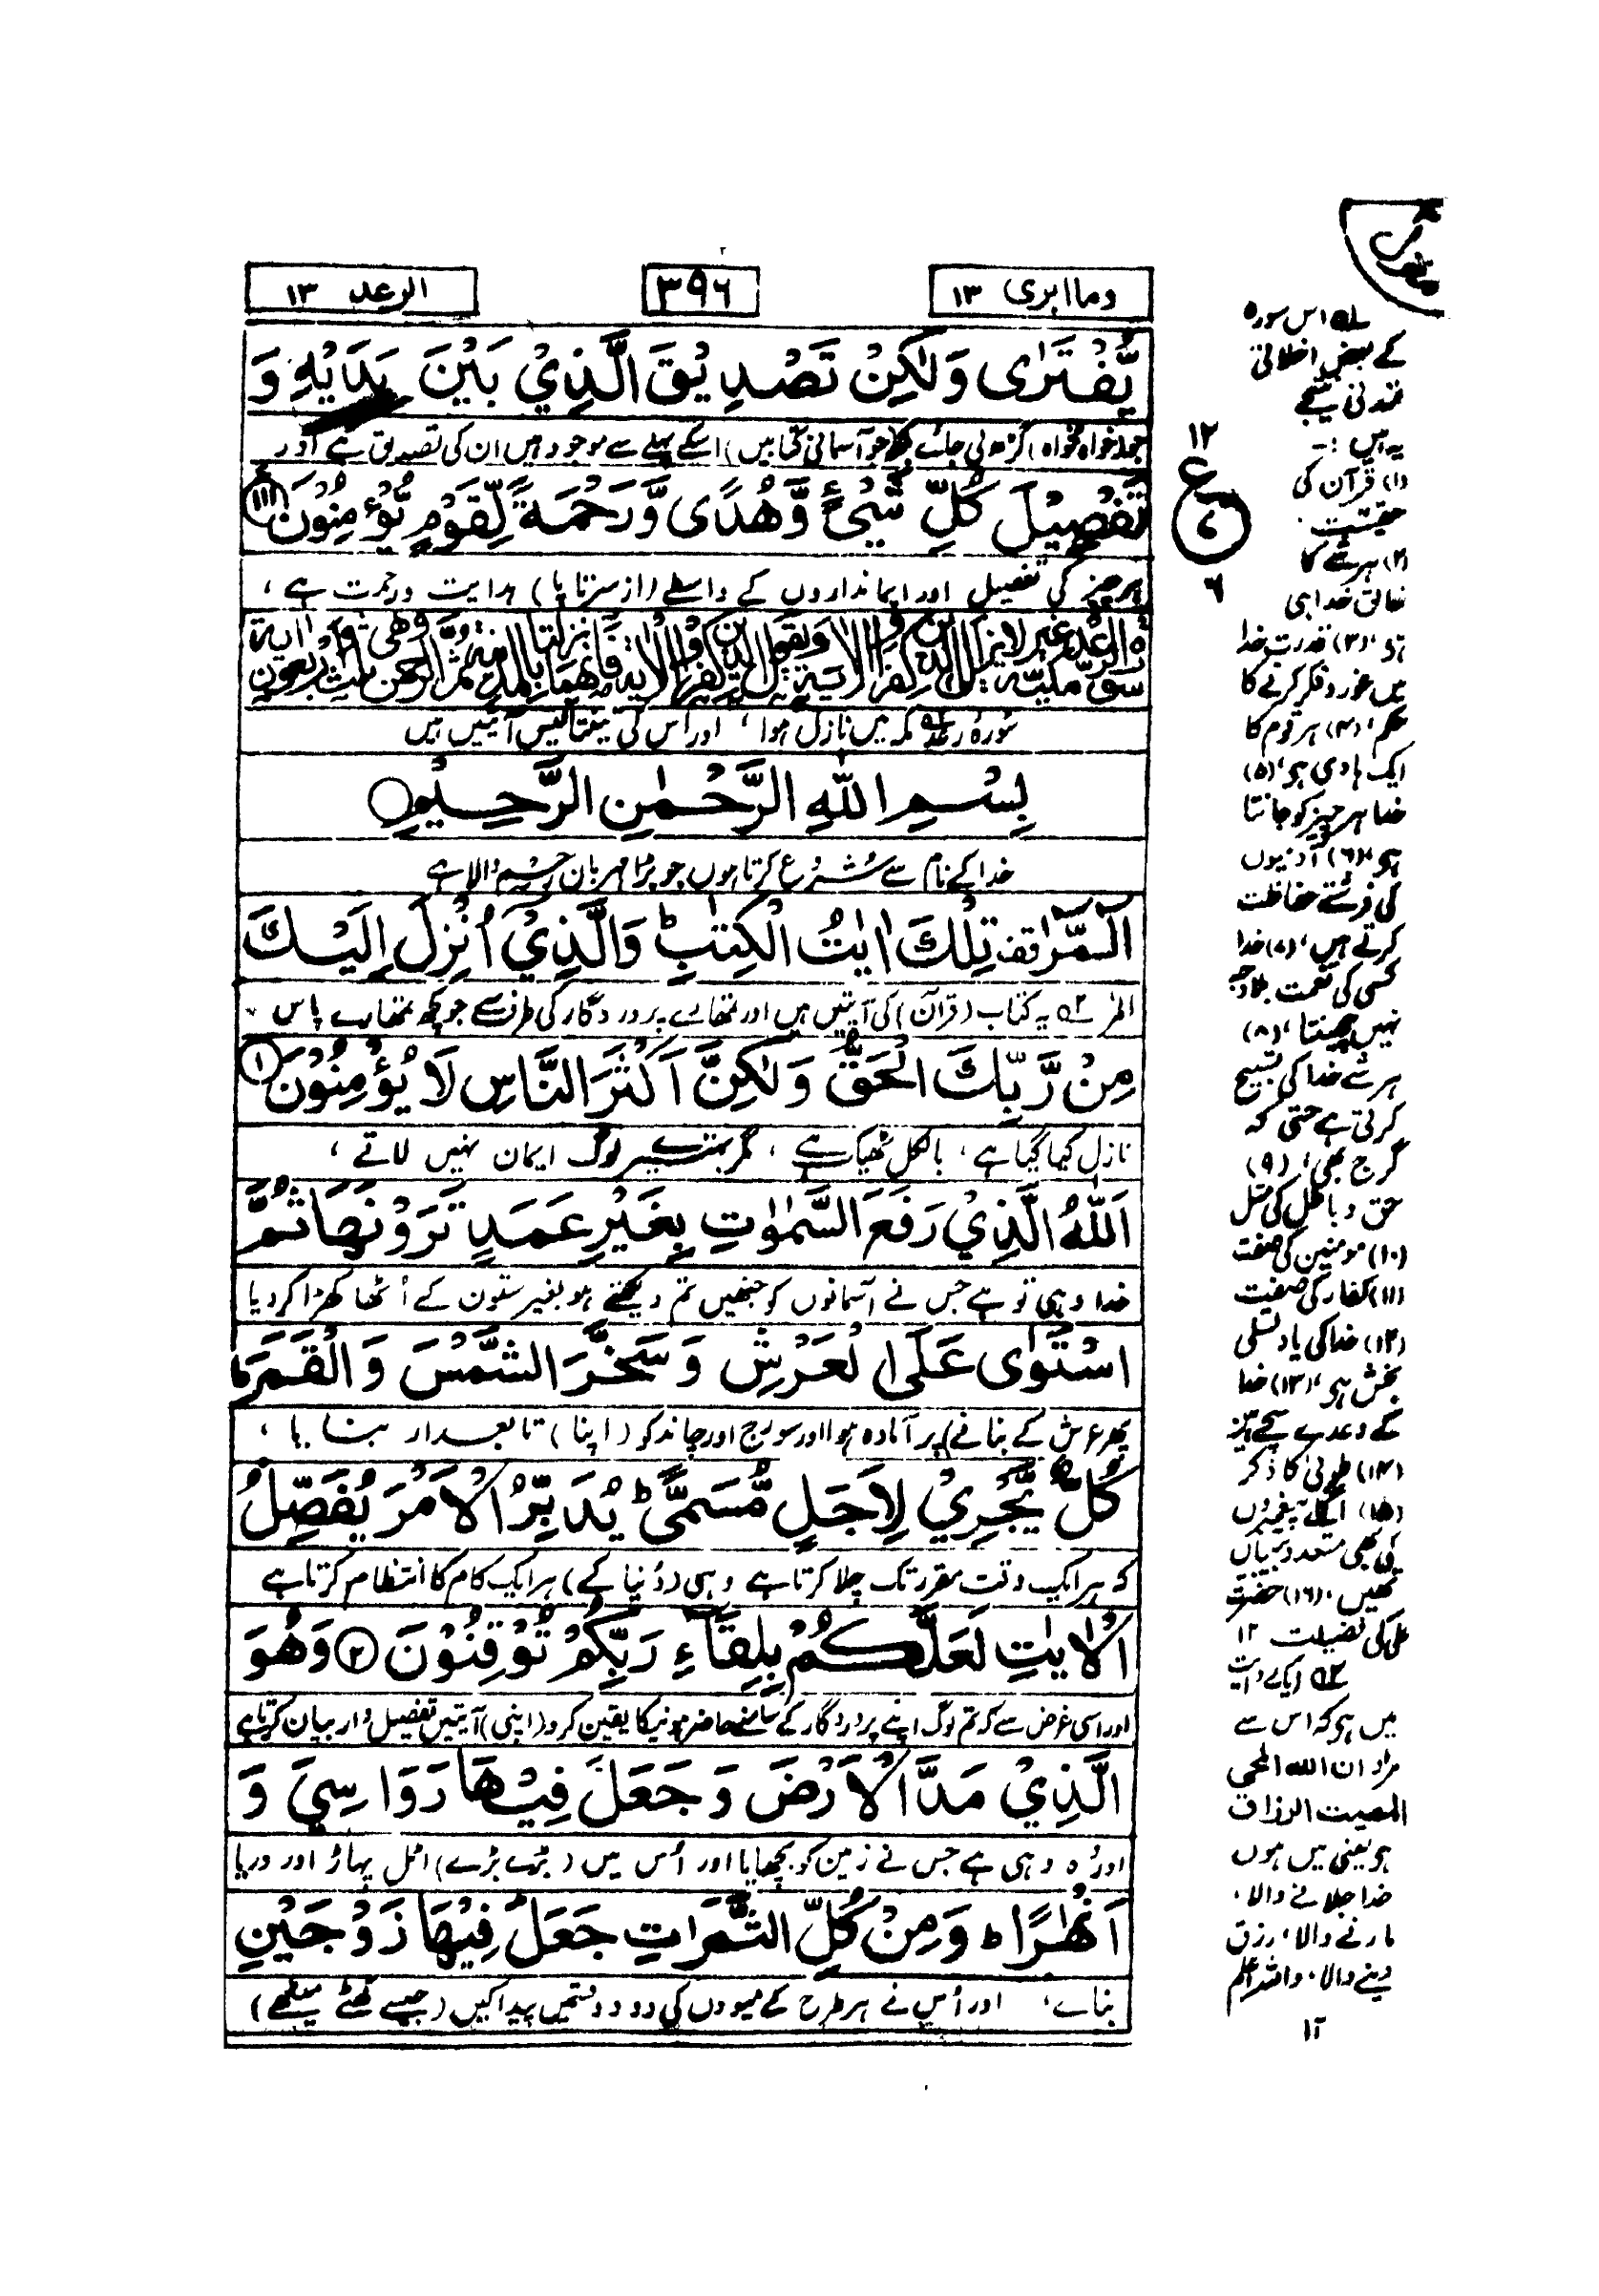 وما ابرئ ١٣
٣٩٦
الرعد ١٣
يُّفْتَرٰى وَلٰكِنْ تَصْدِيْقَ الَّذِيْ بَيْنَ يَدَيْهِ وَ
(خواہ مخواہ) گڑھ لی جائے بلکہ (جو آسمانی کتابیں) اسکے پہلے سے موجود ہیں ان کی تصدیق ہے اور
تَفْصِيْلَ كُلِّ شَيْءٍ وَّهُدًى وَّرَحْمَةً لِّقَوْمٍ يُّؤْمِنُوْنَ ۝١١١
ہر چیز کی تفصیل اور ایمانداروں کے واسطے (از سرتاپا) ہدایت و رحمت ہے ،
سورۂ رعد مکہ میں نازل ہوا ، اور اس کی آیتیں ہیں
بِسْمِ اللّٰهِ الرَّحْمٰنِ الرَّحِيْمِ ۝
خدا کے نام سے شروع کرتا ہوں جو بڑا مہربان رحیم والا ہے
الٓمّٓرٰ قف تِلْكَ اٰيٰتُ الْكِتٰبِ ط وَالَّذِيْ اُنْزِلَ اِلَيْكَ
المر ۵۲ یہ کتاب (قرآن) کی آیتیں ہیں اور تمھارے پروردگار کی طرف سے جو کچھ تمھارے پاس
مِنْ رَّبِّكَ الْحَقُّ وَلٰكِنَّ اَكْثَرَ النَّاسِ لَا يُؤْمِنُوْنَ ۝١
نازل کیا گیا ہے ، بالکل ٹھیک ہے ، مگر بہتیرے لوگ ایمان نہیں لاتے ،
اَللّٰهُ الَّذِيْ رَفَعَ السَّمٰوٰتِ بِغَيْرِ عَمَدٍ تَرَوْنَهَا ثُمَّ
خدا وہی تو ہے جس نے آسمانوں کو جنھیں تم دیکھتے ہو بغیر ستون کے اُٹھا کھڑا کردیا
اسْتَوٰى عَلَى الْعَرْشِ وَسَخَّرَ الشَّمْسَ وَالْقَمَرَ ط
پھر عرش کے بنانے) پر آمادہ ہوا اور سورج اور چاند کو (اپنا) تابعدار بنایا ،
كُلٌّ يَّجْرِيْ لِاَجَلٍ مُّسَمًّى ط يُدَبِّرُ الْاَمْرَ يُفَصِّلُ
کہ ہر ایک وقت مقرر تک چلا کرتا ہے وہی (دُنیا کے) ہر ایک کام کا انتظام کرتا ہے
الْاٰيٰتِ لَعَلَّكُمْ بِلِقَآءِ رَبِّكُمْ تُوْقِنُوْنَ ۝٢ وَهُوَ
اور اسی غرض سے کہ تم لوگ اپنے پروردگار کے سامنے حاضر ہونیکا یقین کرو (اپنی) آیتیں تفصیل وار بیان کرتا ہے
الَّذِيْ مَدَّ الْاَرْضَ وَجَعَلَ فِيْهَا رَوَاسِيَ وَ
اور وہ وہی ہے جس نے زمین کو بچھایا اور اُس میں (بڑے بڑے) اٹل پہاڑ اور دریا
اَنْهٰرًا ط وَمِنْ كُلِّ الثَّمَرٰتِ جَعَلَ فِيْهَا زَوْجَيْنِ
بنائے ، اور اُس نے ہر طرح کے میووں کی دو دو قسمیں پیدا کیں (جیسے کھٹے میٹھے)
١٢
ع
٦
۵۱ اس سورہ
کے بعض اخلاقی
تمدنی نتیجے
یہ ہیں :-
(۱) قرآن کی
حقیقت
(۲) ہر شے کا
خالق خدا ہی
ہو ، (۳) قدرت خدا
میں غور و فکر کرنے کا
حکم ، (۴) ہر قوم کا
ایک ہادی ہو ، (۵)
خدا ہر چیز کو جانتا
ہو ، (۶) آدمیوں
کی فرشتے حفاظت
کرتے ہیں ، (۷) خدا
کسی کی نعمت بلا وجہ
نہیں چھینتا ، (۸)
ہر شے خدا کی تسبیح
کرتی ہے حتی کہ
گرج بھی ، (۹)
حق و باطل کی مثل
(۱۰) مومنین کی صفت
(۱۱) کفار کی صفت
(۱۲) خدا کی یاد تسلی
بخش ہو ، (۱۳) خدا
کے وعدے سچے ہیں
(۱۴) طوبیٰ کا ذکر
(۱۵) اگلے پیغمبروں
کی بھی متعدد بیبیاں
تھیں ، (۱۶) حضرت
علی کی فضیلت ۱۲
۵۲ ایک روایت
میں ہو کہ اس سے
مراد ان اللہ المحی
الممیت الرزاق
ہو یعنی میں ہوں
خدا جلانے والا ،
مارنے والا ، رزق
دینے والا ، واللہ اعلم
۱۲